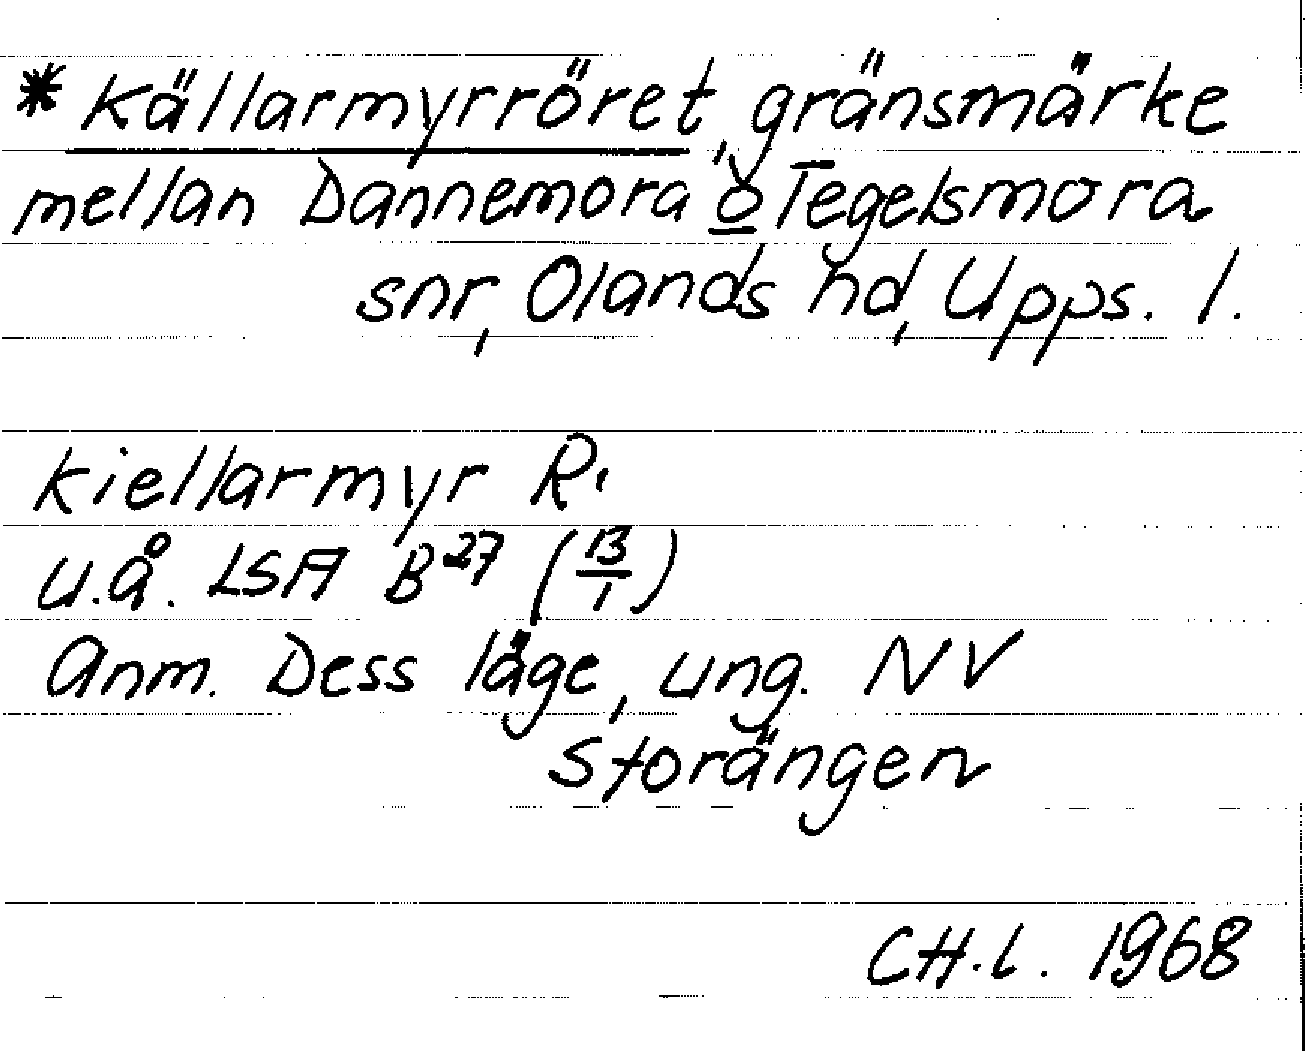 * Källarmyrröret, gränsmärke
mellan Dannemora o Tegelsmora
snr, Olands hd, Upps. l.
kiellarmyr R.
u.å. LSA B 27 (13/1)
Anm. Dess läge, ung. NV
Storängen
CH.L. 1968